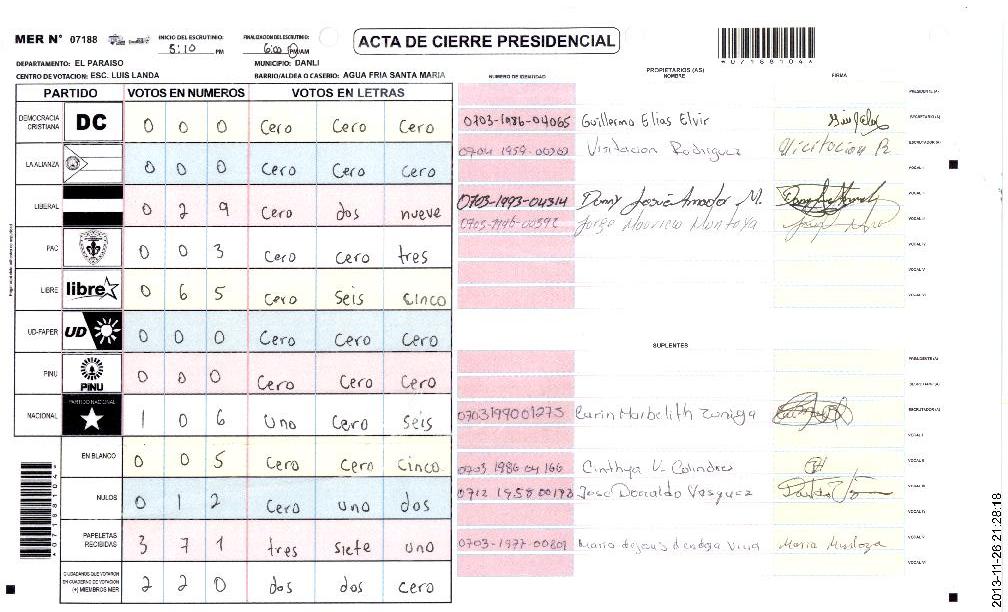 MER N° 07188
INICIO DEL ESCRUTINIO: 5:10 PM
FINALIZACION DEL ESCRUTINIO: 6:00 PM AM
ACTA DE CIERRE PRESIDENCIAL
*071881044*
DEPARTAMENTO: EL PARAISO
MUNICIPIO: DANLI
CENTRO DE VOTACION: ESC. LUIS LANDA
BARRIO/ALDEA O CASERIO: AGUA FRIA SANTA MARIA
PARTIDO VOTOS EN NUMEROS VOTOS EN LETRAS
DEMOCRACIA CRISTIANA DC 0 0 0 Cero Cero Cero
LA ALIANZA 0 0 0 Cero Cero Cero
LIBERAL 0 2 9 Cero dos nueve
PAC 0 0 3 Cero Cero tres
LIBRE libre 0 6 5 Cero Seis Cinco
UD-FAPER UD 0 0 0 Cero Cero Cero
PINU PINU 0 0 0 Cero Cero Cero
NACIONAL PARTIDO NACIONAL 1 0 6 Uno Cero Seis
EN BLANCO 0 0 5 Cero Cero Cinco
NULOS 0 1 2 Cero uno dos
PAPELETAS RECIBIDAS 3 7 1 tres siete uno
CIUDADANOS QUE VOTARON EN CUADERNO DE VOTACION (+) MIEMBROS MER 2 2 0 dos dos cero
NUMERO DE IDENTIDAD PROPIETARIOS (AS) NOMBRE FIRMA
PRESIDENTE (A)
0703-1986-04065 Guillermo Elias Elvir SECRETARIO (A)
Visitacion Rodriguez ESCRUTADOR (A)
VOCAL I
0703-1993-04314 Denny Josue Amador M. VOCAL II
Jorge Mauricio Montoya VOCAL III
VOCAL IV
VOCAL V
VOCAL VI
SUPLENTES
PRESIDENTE (A)
SECRETARIO (A)
0703199001273 Karin Marbelith Zuniga ESCRUTADOR (A)
VOCAL I
0703 1986 04166 Cinthya V. Colindres VOCAL II
0712 1958 00193 Jose Donaldo Vasquez VOCAL III
VOCAL IV
0703-1977-00801 Maria VOCAL V
VOCAL VI
2013-11-26 21:28:18